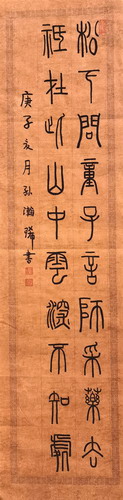 松下問童子言師采藥去
祗在此山中雲深不知處
庚子亥月孫瀚璘書